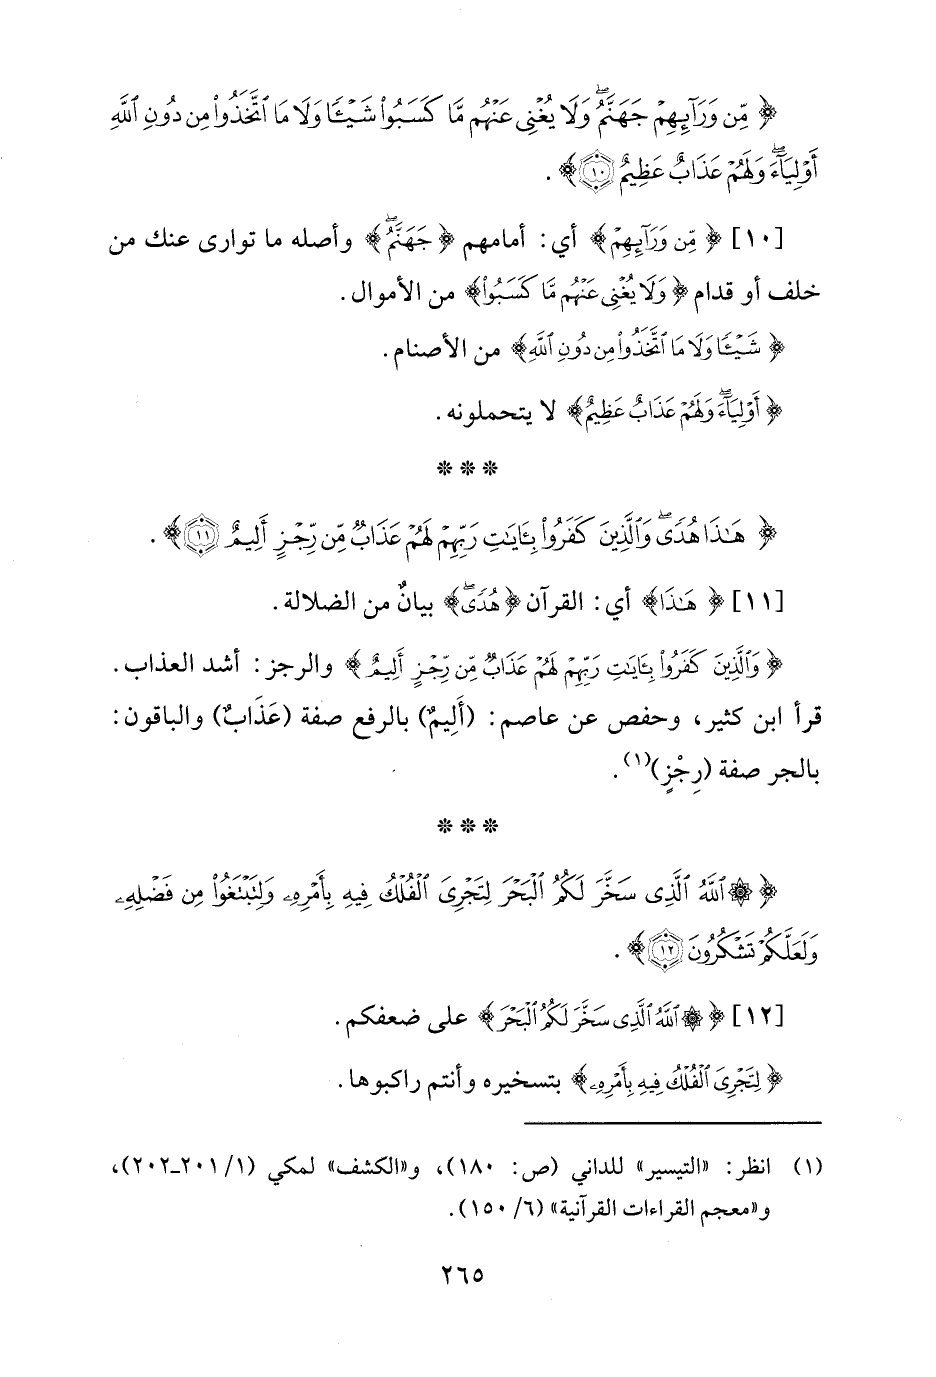 ﴿ مِّن وَرَآئِهِمْ جَهَنَّمُ ۖ وَلَا يُغْنِى عَنْهُم مَّا كَسَبُوا۟ شَيْـًٔا وَلَا مَا ٱتَّخَذُوا۟ مِن دُونِ ٱللَّهِ
أَوْلِيَآءَ ۖ وَلَهُمْ عَذَابٌ عَظِيمٌ ١٠ ﴾ .
[١٠] ﴿ مِّن وَرَآئِهِمْ ﴾ أي: أمامهم ﴿ جَهَنَّمُ ۖ ﴾ وأصله ما توارى عنك من
خلف أو قدام ﴿ وَلَا يُغْنِى عَنْهُم مَّا كَسَبُوا۟ ﴾ من الأموال.
﴿ شَيْـًٔا وَلَا مَا ٱتَّخَذُوا۟ مِن دُونِ ٱللَّهِ ﴾ من الأصنام.
﴿ أَوْلِيَآءَ ۖ وَلَهُمْ عَذَابٌ عَظِيمٌ ﴾ لا يتحملونه.
* * *
﴿ هَـٰذَا هُدًى ۖ وَٱلَّذِينَ كَفَرُوا۟ بِـَٔايَـٰتِ رَبِّهِمْ لَهُمْ عَذَابٌ مِّن رِّجْزٍ أَلِيمٌ ١١ ﴾ .
[١١] ﴿ هَـٰذَا ﴾ أي: القرآن ﴿ هُدًى ۖ ﴾ بيانٌ من الضلالة.
﴿ وَٱلَّذِينَ كَفَرُوا۟ بِـَٔايَـٰتِ رَبِّهِمْ لَهُمْ عَذَابٌ مِّن رِّجْزٍ أَلِيمٌ ﴾ والرجز: أشد العذاب.
قرأ ابن كثير، وحفص عن عاصم: (أَلِيمٌ) بالرفع صفة (عَذَابٌ) والباقون:
بالجر صفة (رِجْزٍ)(١).
* * *
﴿ ۞ ٱللَّهُ ٱلَّذِى سَخَّرَ لَكُمُ ٱلْبَحْرَ لِتَجْرِىَ ٱلْفُلْكُ فِيهِ بِأَمْرِهِۦ وَلِتَبْتَغُوا۟ مِن فَضْلِهِۦ
وَلَعَلَّكُمْ تَشْكُرُونَ ١٢ ﴾ .
[١٢] ﴿ ۞ ٱللَّهُ ٱلَّذِى سَخَّرَ لَكُمُ ٱلْبَحْرَ ﴾ على ضعفكم.
﴿ لِتَجْرِىَ ٱلْفُلْكُ فِيهِ بِأَمْرِهِۦ ﴾ بتسخيره وأنتم راكبوها.
(١) انظر: «التيسير» للداني (ص: ١٨٠)، و«الكشف» لمكي (١/ ٢٠١-٢٠٢)،
و«معجم القراءات القرآنية» (٦/ ١٥٠).
٢٦٥